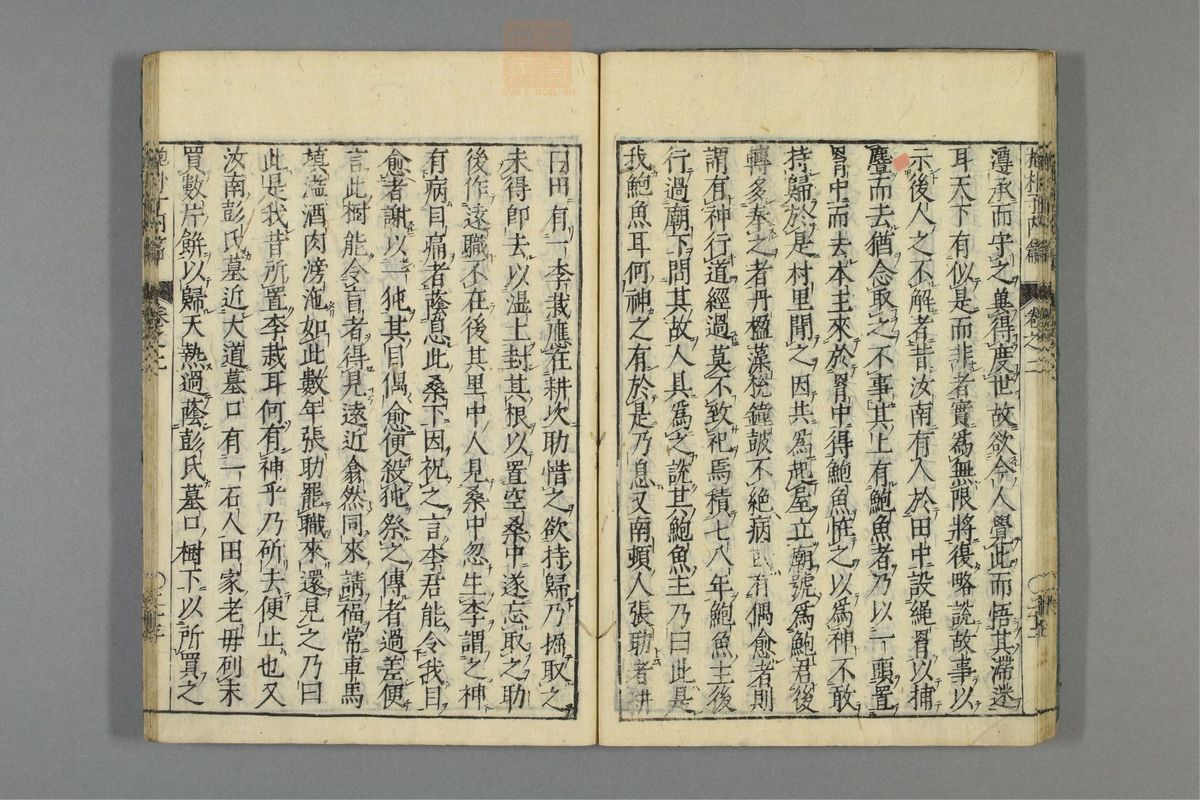 遵承而守之冀得度世故欲令人覺此而悟其滯迷
耳天下有似是而非者實為無限將復略說故事以
示後人之不解者昔汝南有人於田中設繩罥以捕
麞而去猶念取之不事其上有鮑魚者乃以一頭置
罥中而去本主來於罥中得鮑魚恠之以為神不敢
持歸於是村里聞之因共為起屋立廟號為鮑君後
轉多奉之者丹楹藻梲鐘皷不絕病或有偶愈者則
謂有神行道經過莫不致祀焉積七八年鮑魚主後
行過廟下問其故人具為之說其鮑魚主乃曰此是
我鮑魚耳何神之有於是乃息又南頓人張助者耕
白田有一李栽應在耕次助惜之欲持歸乃掘取之
未得即去以濕土封其根以置空桑中遂忘取之助
後作遠職不在後其里中人見桑中忽生李謂之神
有病目痛者蔭息此桑下因祝之言李君能令我目
愈者謝以一㹠其目偶愈便殺㹠祭之傳者過差便
言此樹能令盲者得見遠近翕然同來請福常車馬
填溢酒肉滂沲如此數年張助罷職來還見之乃曰
此是我昔所置李栽耳何有神乎乃斫去便止也又
汝南彭氏墓近大道墓口有一石人田家老母到末
買數片餅以歸天熱過蔭彭氏墓口樹下以所買之